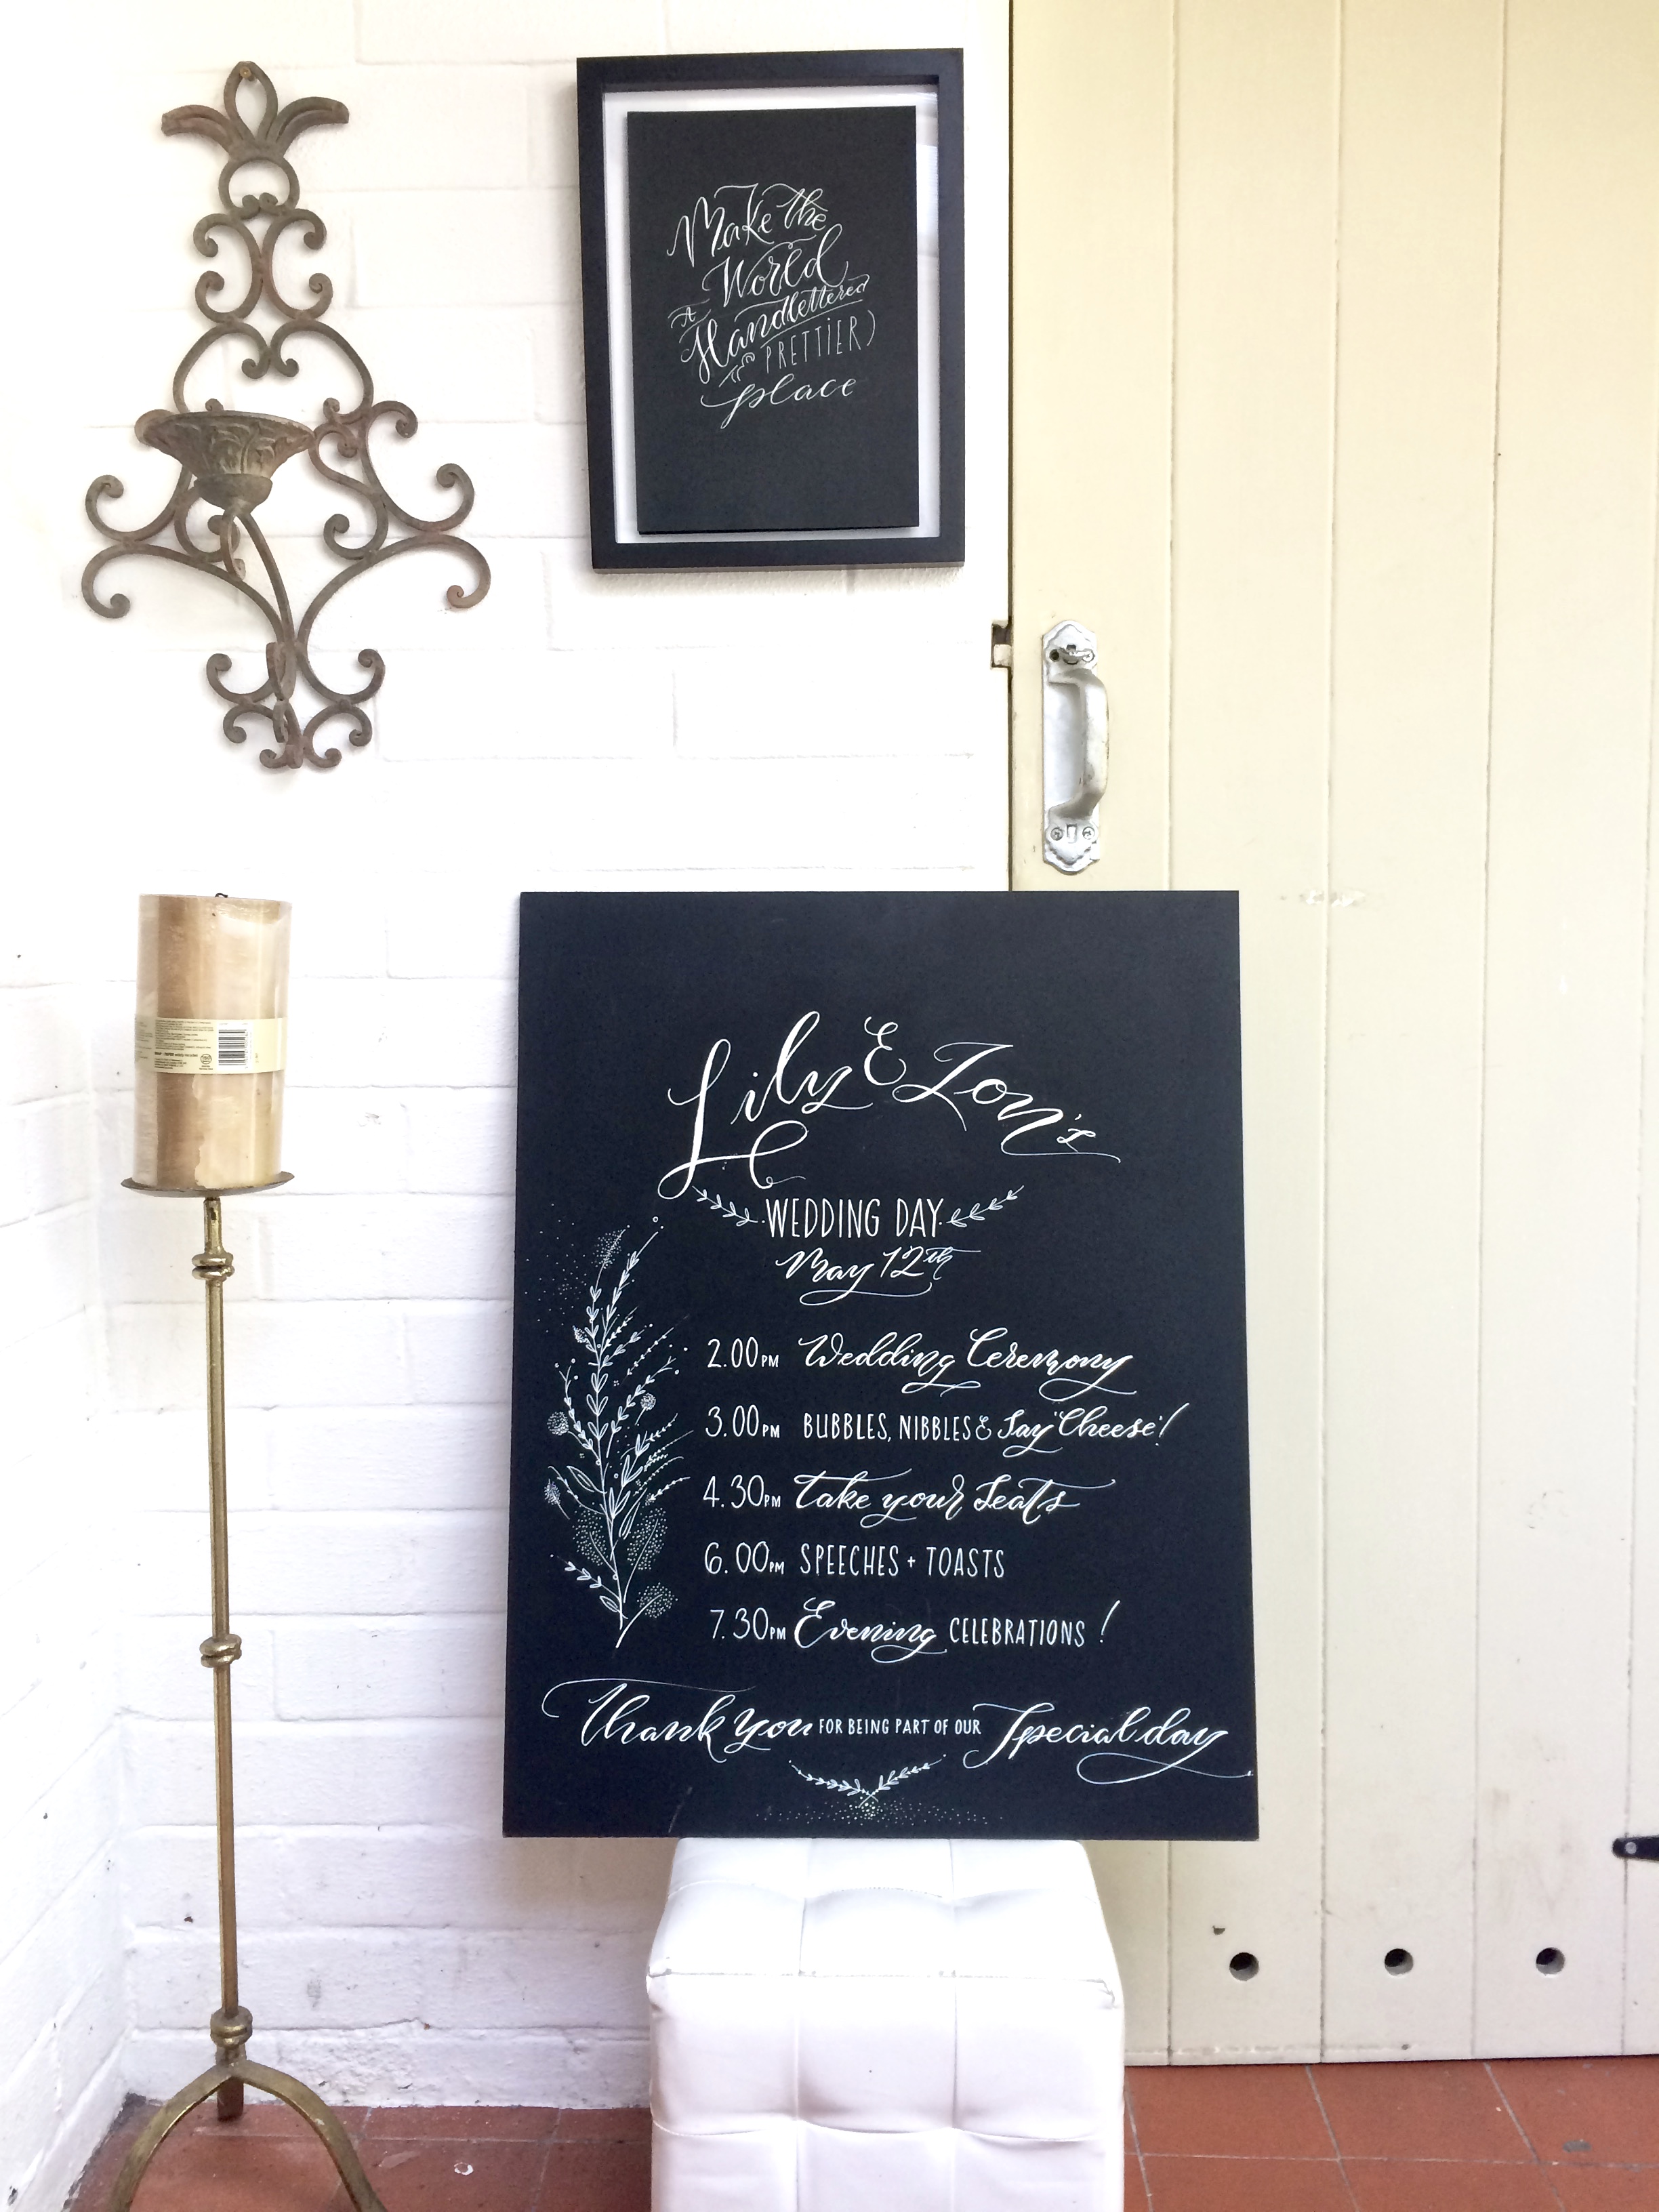 Make the
World
A
Handlettered
(& PRETTIER)
place
Lily & Zon's
WEDDING DAY
May 12th
2.00PM Wedding Ceremony
3.00PM BUBBLES, NIBBLES & Say "Cheese"!
4.30PM Take your Seats
6.00PM SPEECHES + TOASTS
7.30PM Evening CELEBRATIONS!
Thank you FOR BEING PART OF OUR Special day